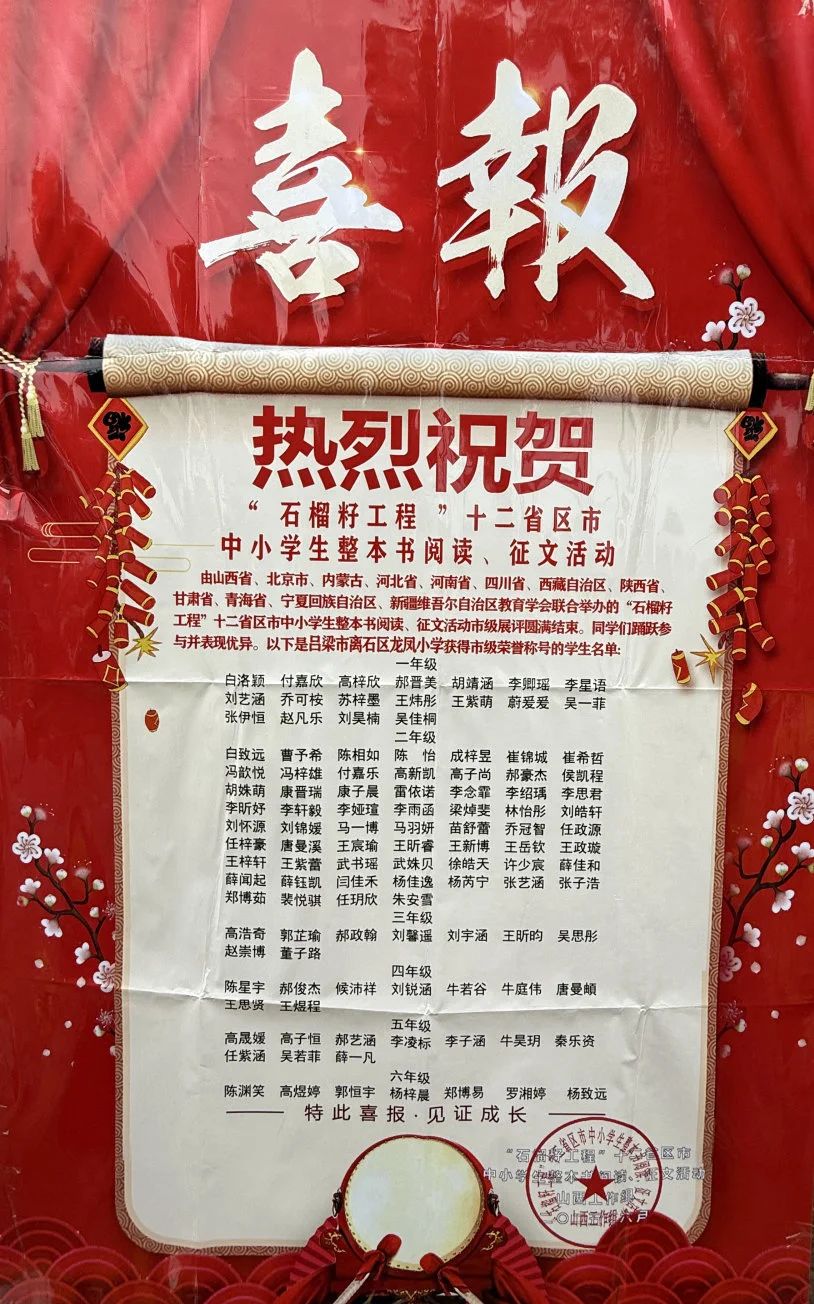 喜報
热烈祝贺
“石榴籽工程”十二省区市
中小学生整本书阅读、征文活动
由山西省、北京市、内蒙古、河北省、河南省、四川省、西藏自治区、陕西省、
甘肃省、青海省、宁夏回族自治区、新疆维吾尔自治区教育学会联合举办的“石榴籽
工程”十二省区市中小学生整本书阅读、征文活动市级展评圆满结束。同学们踊跃参
与并表现优异。以下是吕梁市离石区龙凤小学获得市级荣誉称号的学生名单:
一年级
白洛颖 付嘉欣 高梓欣 郝晋美 胡靖涵 李卿瑶 李星语
刘艺涵 乔可桉 苏梓墨 王炜彤 王紫萌 蔚爱爱 吴一菲
张伊恒 赵凡乐 刘昊楠 吴佳桐
二年级
白致远 曹予希 陈相如 陈怡 成梓昱 崔锦城 崔希哲
冯歆悦 冯梓雄 付嘉乐 高新凯 高子尚 郝豪杰 侯凯程
胡姝萌 康晋瑞 康子晨 雷依诺 李念霏 李绍瑀 李思君
李昕妤 李轩毅 李娅瑄 李雨函 梁焯斐 林怡彤 刘皓轩
刘怀源 刘锦媛 马一博 马羽妍 苗舒蕾 乔冠智 任政源
任梓豪 唐曼溪 王宸瑜 王昕睿 王新博 王岳钦 王政璇
王梓轩 王紫蕾 武书瑶 武姝贝 徐皓天 许少宸 薛佳和
薛闻起 薛钰凯 闫佳禾 杨佳逸 杨芮宁 张艺涵 张子浩
郑博茹 裴悦骐 任玥欣 朱安雪
三年级
高浩奇 郭芷瑜 郝政翰 刘馨遥 刘宇涵 王昕昀 吴思彤
赵崇博 董子路
四年级
陈星宇 郝俊杰 候沛祥 刘锐涵 牛若谷 牛庭伟 唐曼頔
王思贤 王煜程
五年级
高晟媛 高子恒 郝艺涵 李凌标 李子涵 牛昊玥 秦乐资
任紫涵 吴若菲 薛一凡
六年级
陈渊笑 高煜婷 郭恒宇 杨梓晨 郑博易 罗湘婷 杨致远
特此喜报·见证成长
“石榴籽工程”十二省区市
中小学生整本书阅读、征文活动
山西工作组
六月
山西工作组